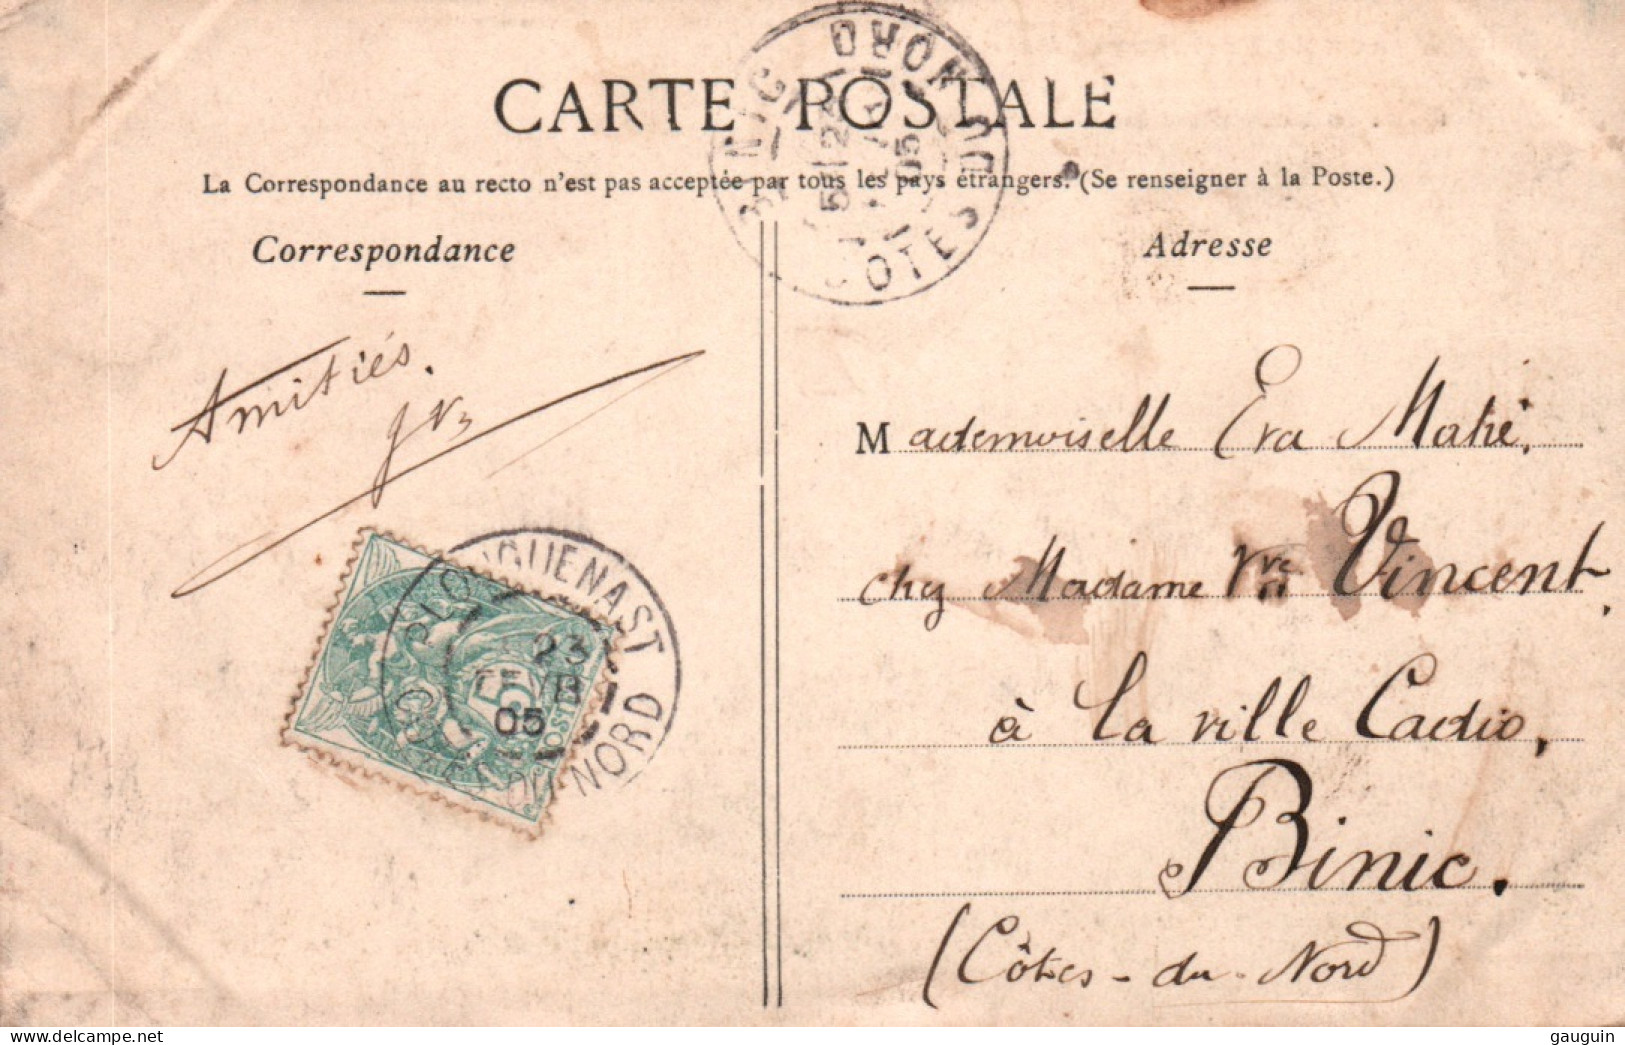 CARTE POSTALE
La Correspondance au recto n'est pas acceptée par tous les pays étrangers. (Se renseigner à la Poste.)
Correspondance
Adresse
BINIC
COTES DU NORD
05
Amitiés.
PLOUGUENAST
23
FEVR
05
COTES DU NORD
5
POSTES
Mademoiselle Eva Mahé,
chez Madame Vve Vincent,
à La ville Cadio,
Binic.
(Côtes-du-Nord)
www.delcampe.net
gauguin